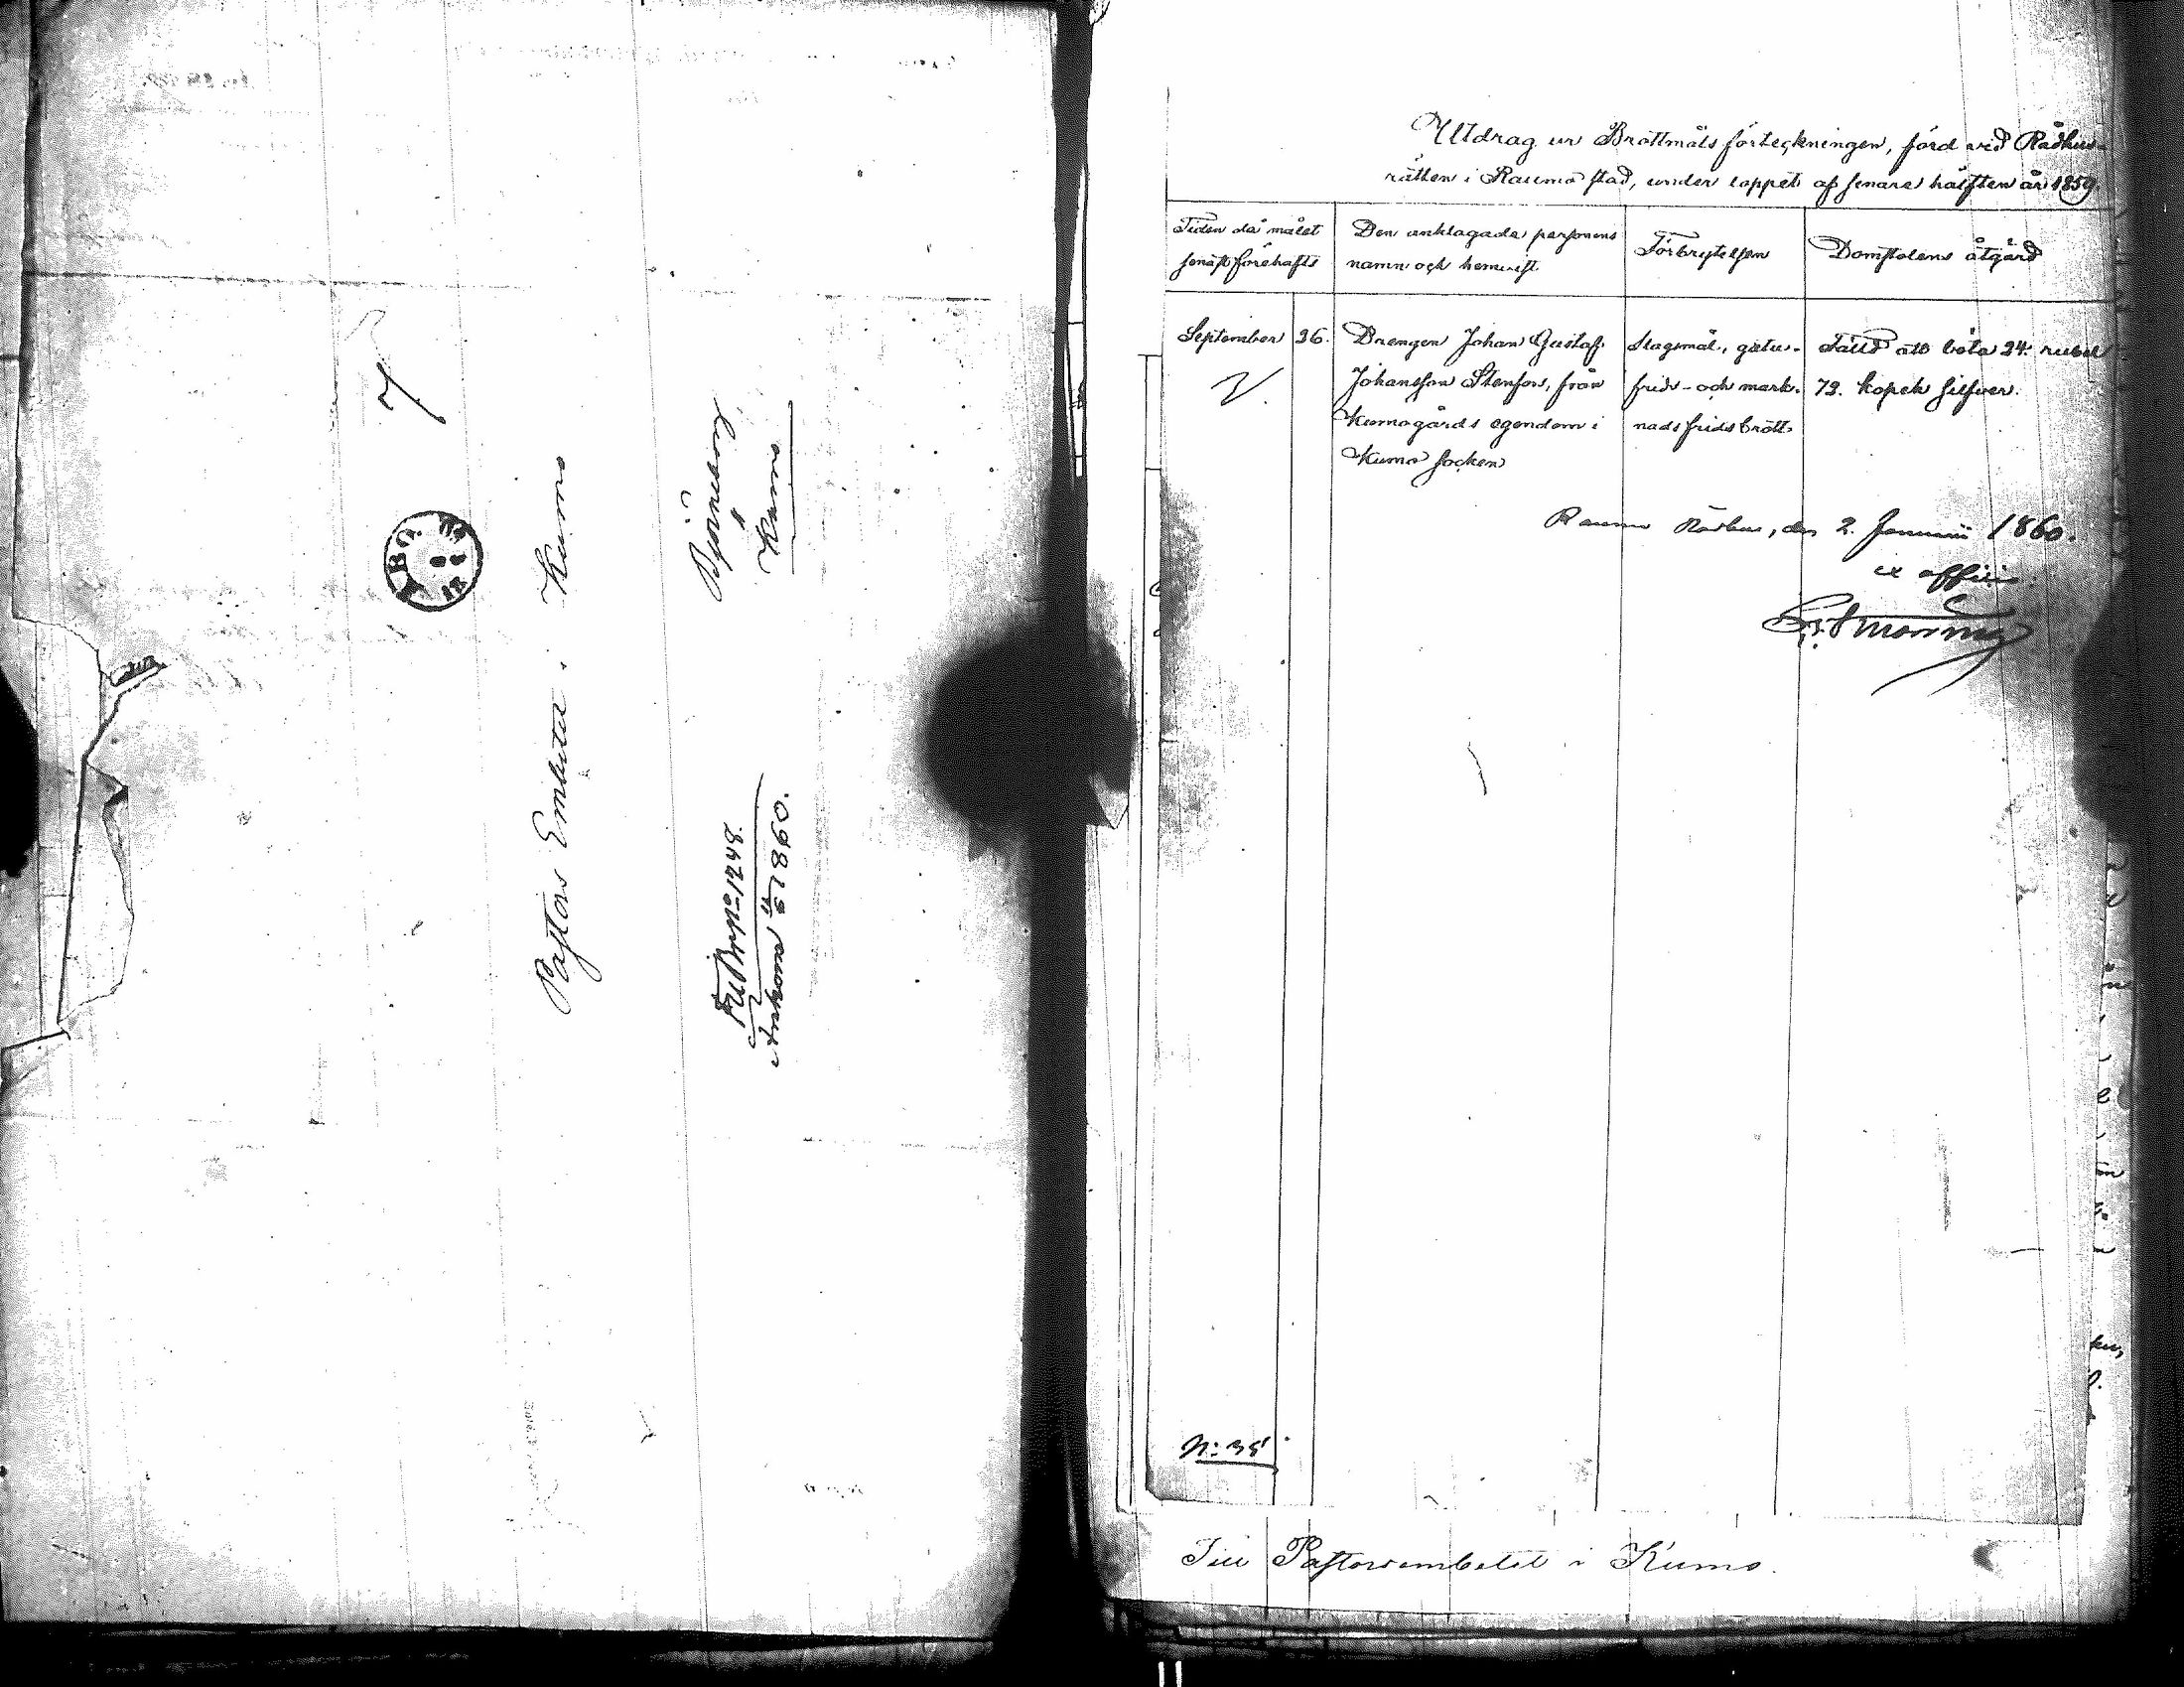 Pastors Embetet i Kumo
Björneborg
Kumo
Ankom 1860.
Utdrag ur Brottmåls förteckningen, förd vid Rådhus-
rätten i Raumo stad, under loppet af senare hälften år 1859.
Tiden då målet
senast förehafts
Den anklagade personens
namn och hemvist
Förbrytelsen
Domstolens åtgärd
September 26.
Drengen Johan Gustaf
Johansson Stenfors, från
Kumogårds egendom i
Kumo socken
Slagsmål, gatu-
frids- och mark-
nadsfridsbrott
Fälld att böta 24. rubel
73. kopek silfver.
Raumo Rådhus, den 2. Januarii 1860.
ex officio
N:o 38
Till Pastorsembetet i Kumo.